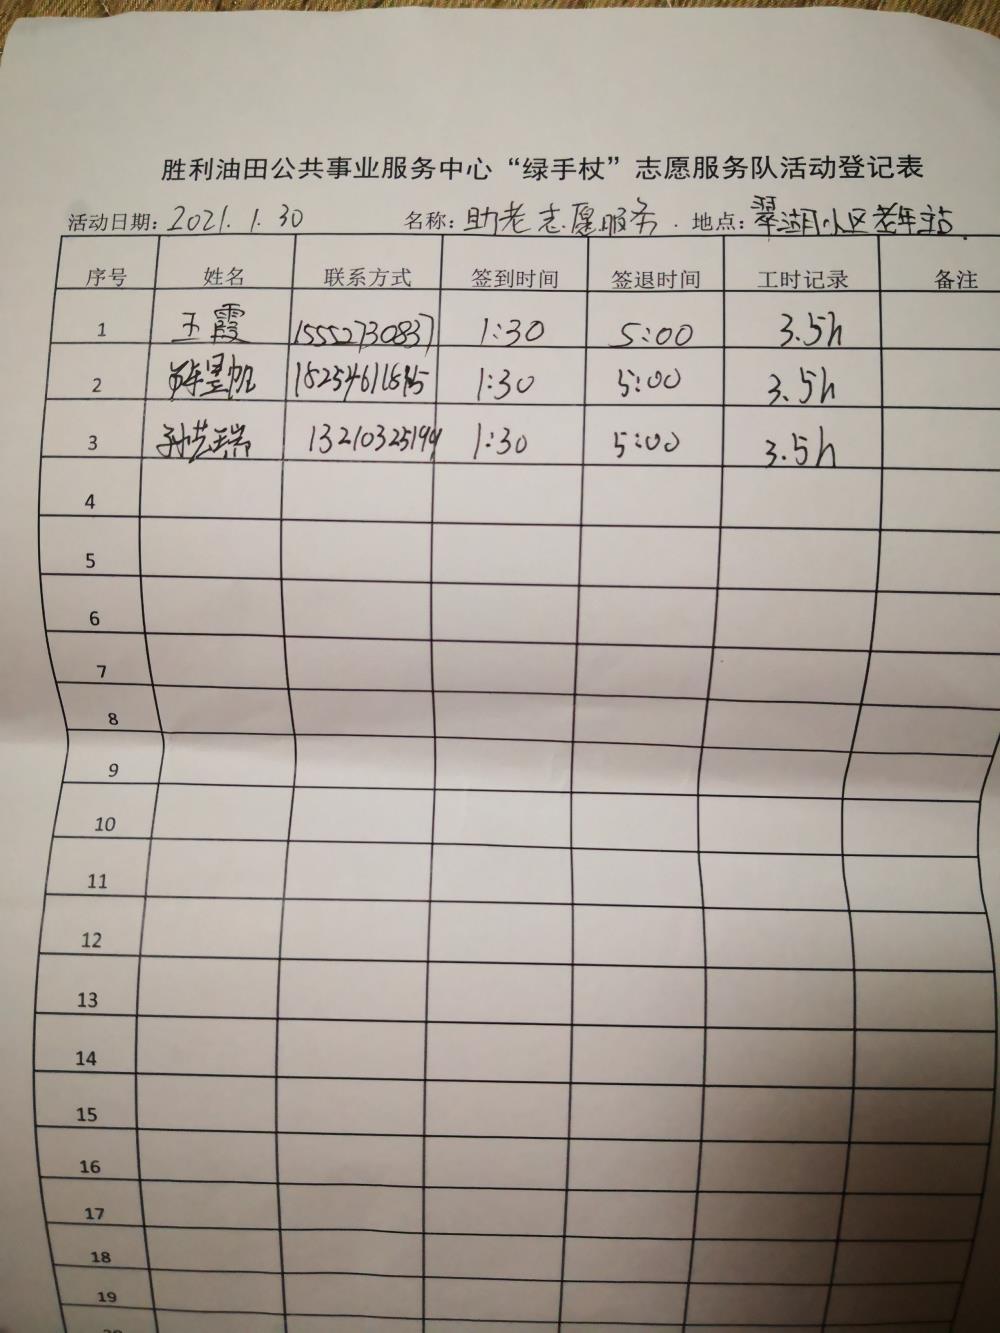 胜利油田公共事业服务中心“绿手杖”志愿服务队活动登记表
活动日期：2021.1.30 名称：助老志愿服务. 地点：翠湖小区老年站.
序号 姓名 联系方式 签到时间 签退时间 工时记录 备注
1 王霞 15552730837 1:30 5:00 3.5h
2 1:30 5:00 3.5h
3 孙艺瑞 13210325199 1:30 5:00 3.5h
4
5
6
7
8
9
10
11
12
13
14
15
16
17
18
19